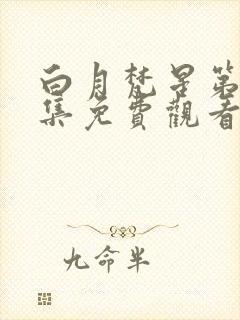 白月梵星第
集免費觀看
九命半